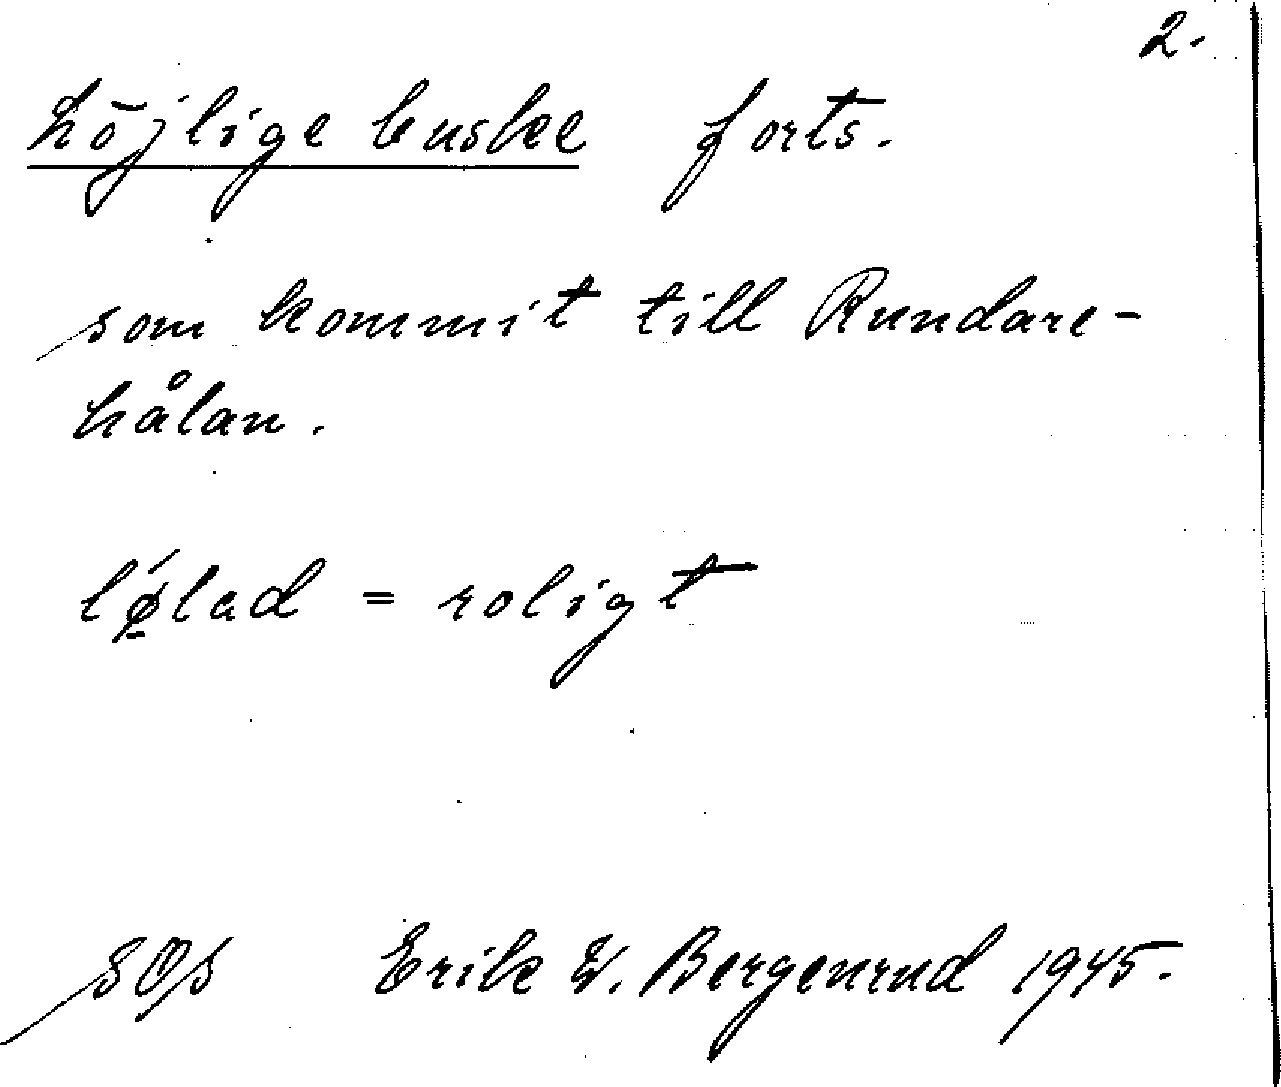 2.
Löjlige buske forts.
som kommit till Rundare-
hålan.
lǿ̱lad = roligt
SOS Erik W. Bergenrud 1945.